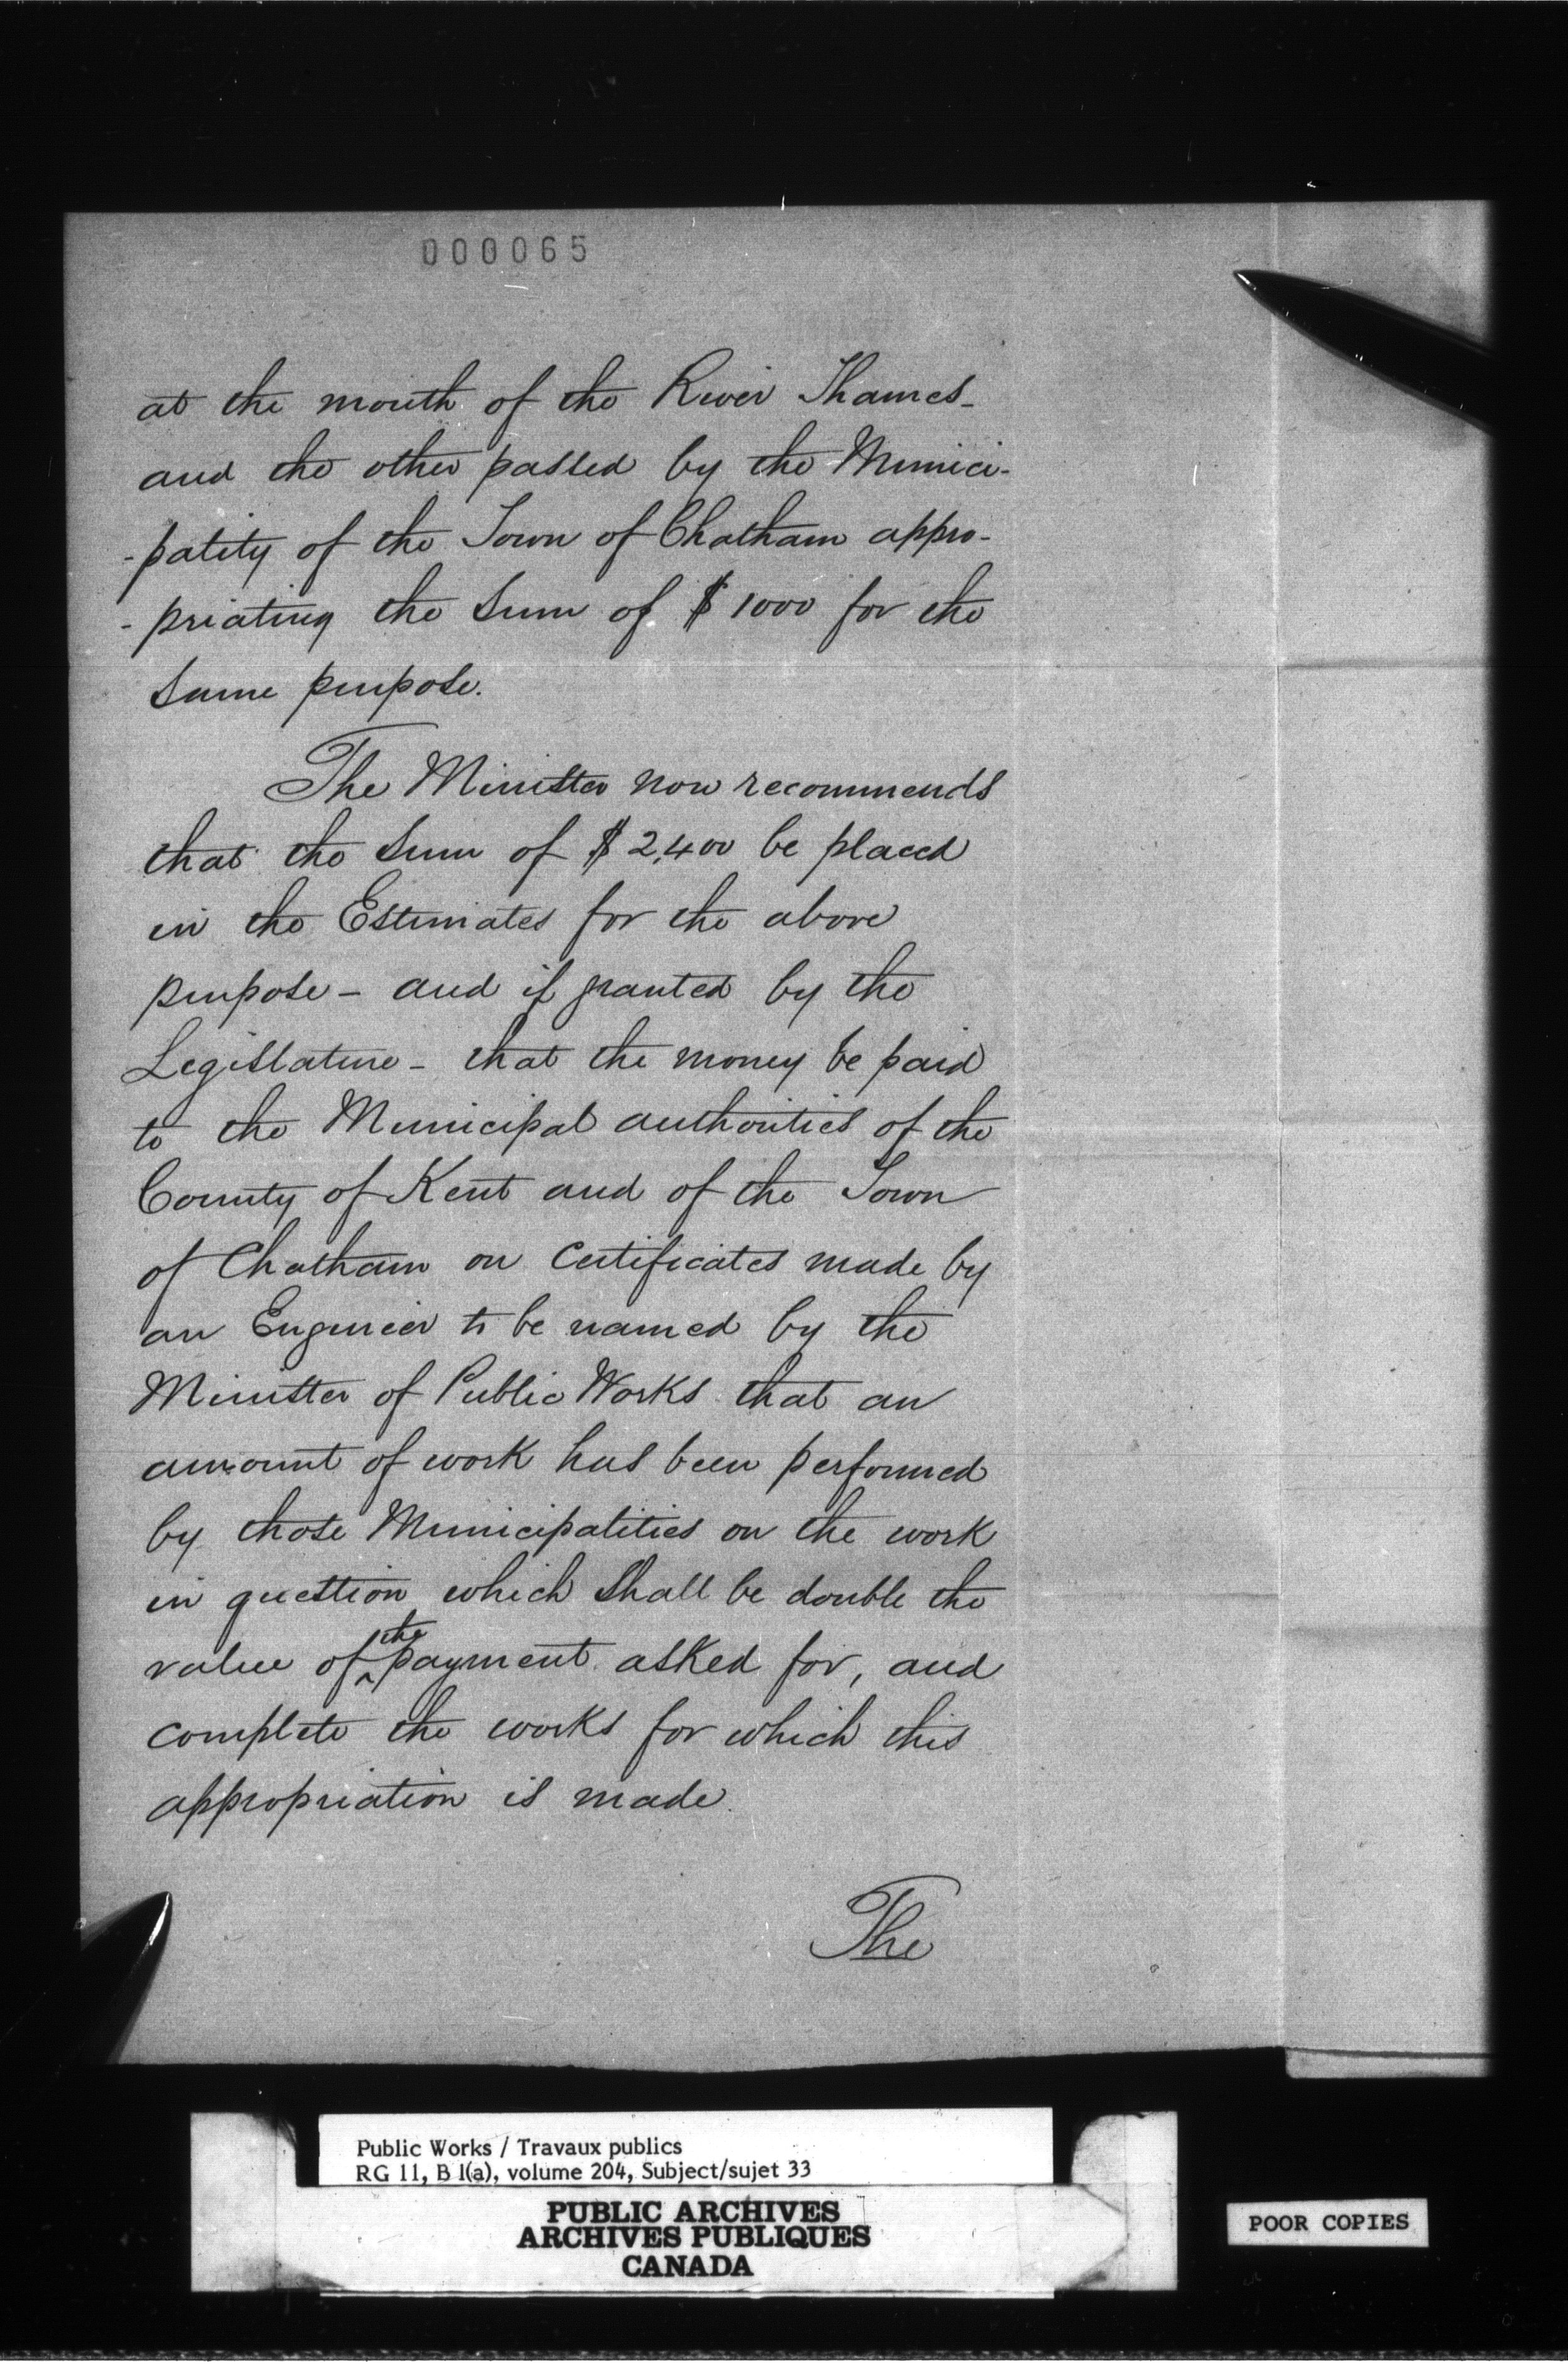 000065
at the mouth of the River Thames-
and the other passed by the Munici-
-pality of the Town of Chatham appro-
-priating the Sum of $1000 for the
Same purpose.
The Minister now recommends
that the Sum of $2,400 be placed
in the Estimates for the above
purpose - and if granted by the
Legislature - that the money be paid
to the Municipal authorities of the
County of Kent and of the Town
of Chatham on Certificates made by
an Engineer to be named by the
Minister of Public Works that an
amount of work has been performed
by those Municipalities on the work
in question which Shall be double the
value of the payment asked for, and
complete the works for which this
appropriation is made.
The
Public Works / Travaux publics
RG 11, B 1(a), volume 204, Subject/sujet 33
PUBLIC ARCHIVES
ARCHIVES PUBLIQUES
CANADA
POOR COPIES